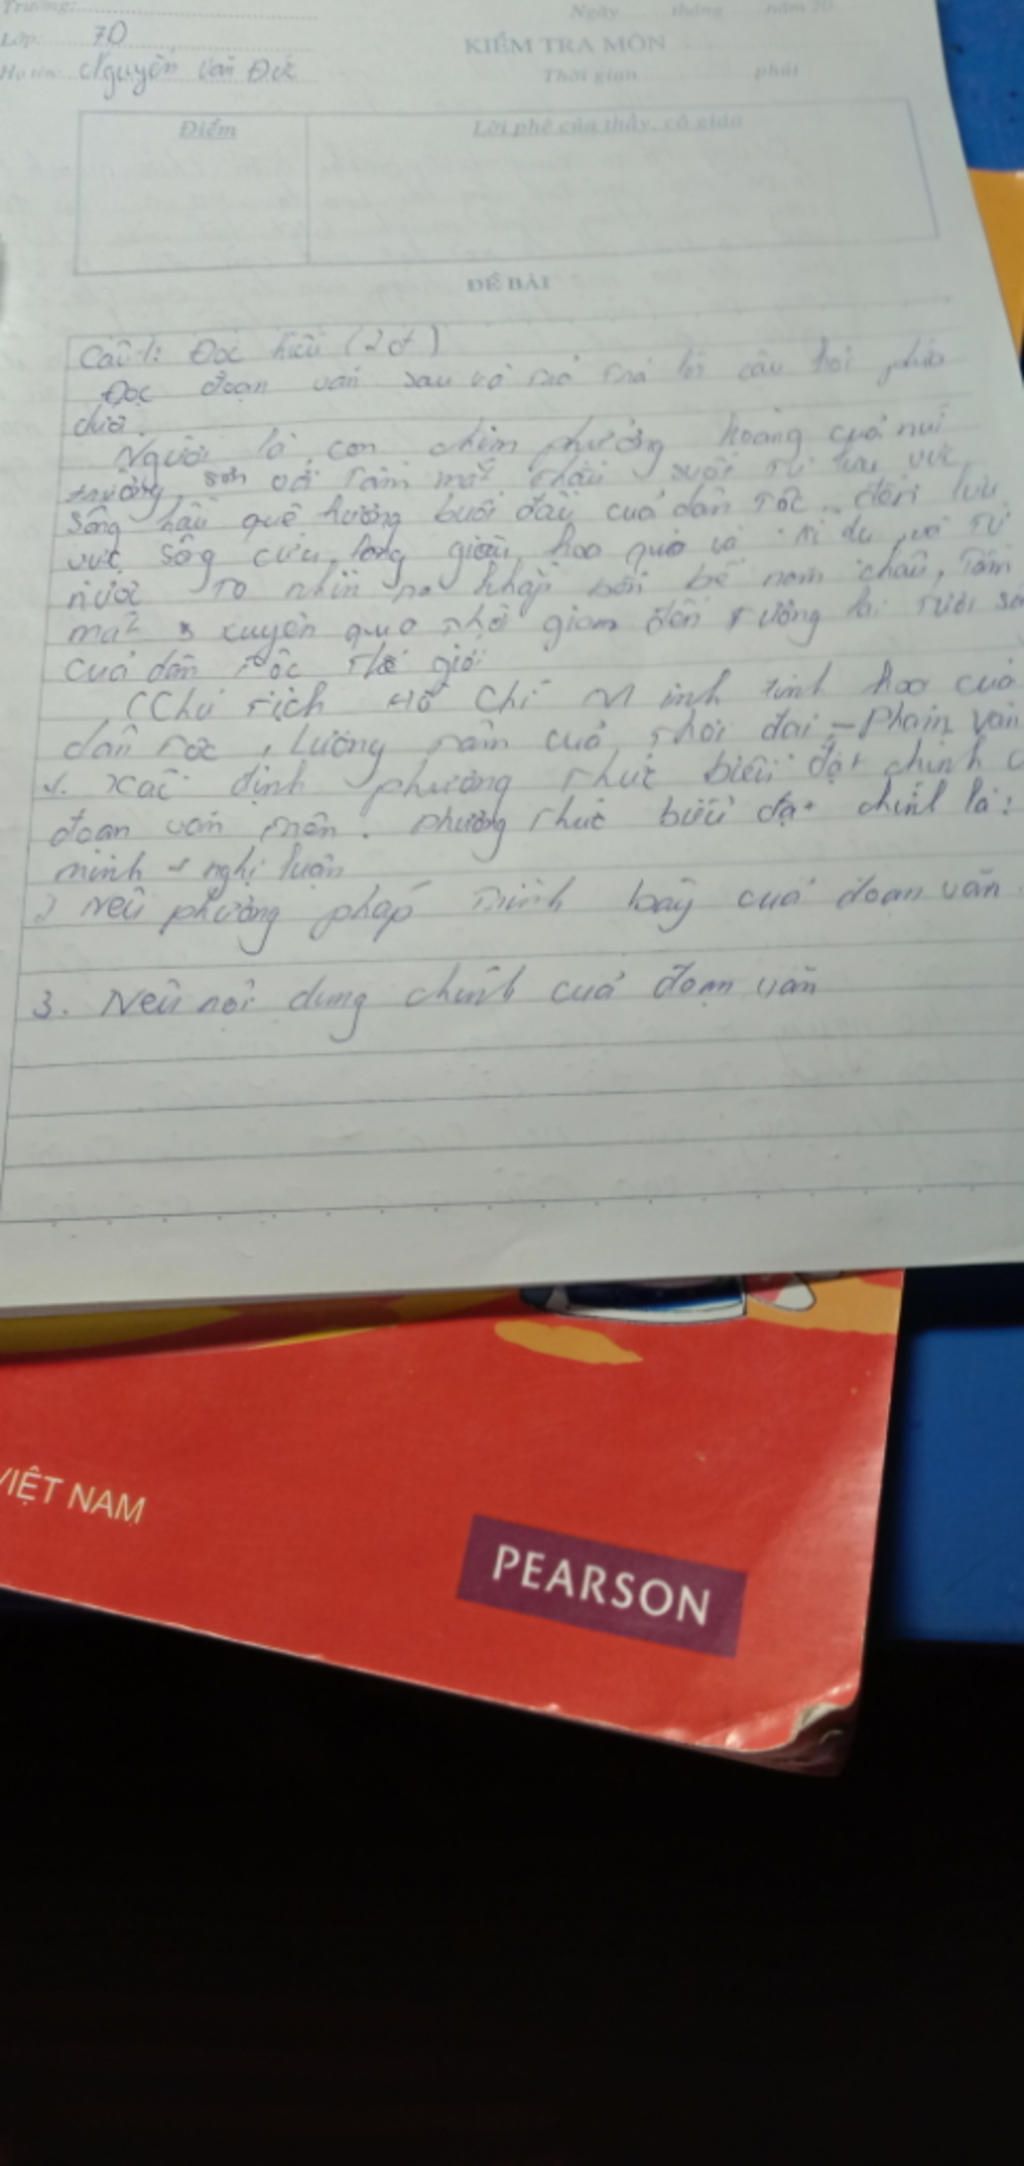 Trường:
Ngày tháng năm 20
Lớp: 7D
KIỂM TRA MÔN
Họ tên: Nguyễn Văn Đức
Thời gian phút
Điểm
Lời phê của thầy, cô giáo
ĐỀ BÀI
Câu 1: Đọc hiểu (2đ)
Đọc đoạn văn sau và trả lời câu hỏi phía
dưới
Người là con chim phượng hoàng quả núi
trường sơn với tầm mắt suốt từ lưu vực
sông hậu quê hương buổi đầu của dân tộc đến lưu
vực sông cửu long giàu hoa quả và từ
nước ta nhìn ra khắp bốn bể năm châu, tầm
mắt xuyên qua thời gian đến tương lai
của dân tộc thế giới
(Chủ tịch Hồ Chí Minh tinh hoa của
dân tộc, lương tâm của thời đại - Phạm Văn
1. Xác định phương thức biểu đạt chính
đoạn văn trên. Phương thức biểu đạt chính là:
minh + nghị luận
2 Nêu phương pháp trình bày của đoạn văn
3. Nêu nội dung chính của đoạn văn
VIỆT NAM
PEARSON